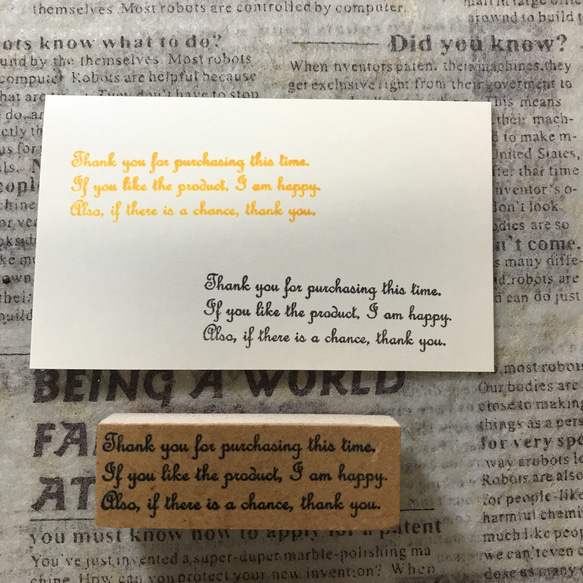 themselves. Most robots are controlled by computer.
ots know what to do?
und by the themselves. Most robots
computer. Robots are helpful because
Did you know?
When nventors paten, their machines, they
get exclusive right from their goverment to
means
their mach-
to make m-
United States,
after that time
don't look.
dies are so
't come.
many diffe-
robots are
can do just
Thank you for purchasing this time.
If you like the product, I am happy.
Also, if there is a chance, thank you.
Thank you for purchasing this time.
If you like the product, I am happy.
Also, if there is a chance, thank you.
BEING A WORLD
FA
AT
most robots
Our bodies are
close to making
things as a pers
for very spe
way arobots l
Robots are also
for people-like
harmful chemi
much like peop
Thank you for purchasing this time.
If you like the product, I am happy.
Also, if there is a chance, thank you.
you must know how to apply for a patent
You've just invented a super-duper marble-polishing ma
chine. How can you protect your new invention? When